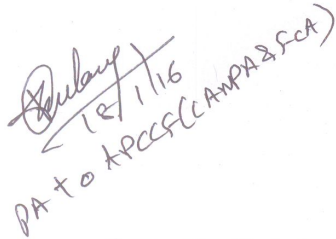 18/1/16
PA to APCCF(CAMPA & FCA)